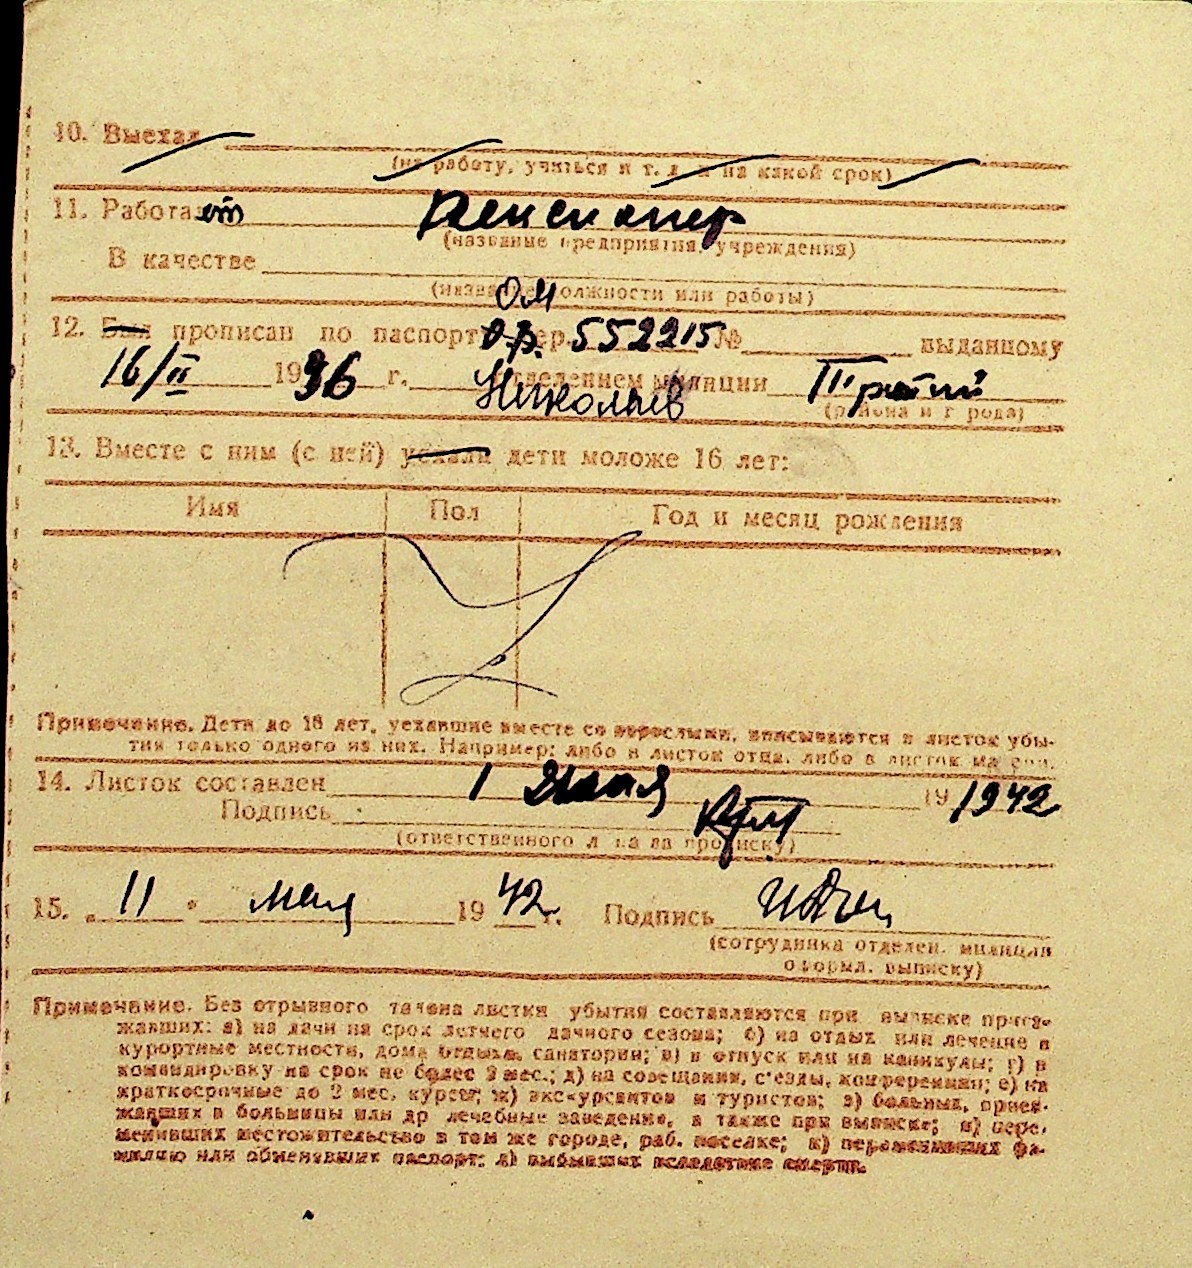 10. Выехал
(на работу, учиться и т. д. и на какой срок)
11. Работает Пенсионер
(название предприятия, учреждения)
В качестве
(название должности или работы)
ОМ
12. Был прописан по паспорту сер. 552215 № выданному
16/II 1936 г. Николаев отделением милиции
(района и города)
13. Вместе с ним (с ней) уехали дети моложе 16 лет:
Имя Пол Год и месяц рождения
Примечание. Дети до 16 лет, уехавшие вместе со взрослыми, вписываются в листок убы-
тия только одного из них. Например: либо в листок отца, либо в листок матери.
14. Листок составлен 1 19 1942
Подпись
(ответственного лица за прописку)
15. „ 11 " мая 19 42 г. Подпись
(сотрудника отделен. милиции
оформл. выписку)
Примечание. Без отрывного талона листки убытия составляются при выписке приез-
жавших: а) на дачи на срок летнего дачного сезона; б) на отдых или лечение в
курортные местности, дома отдыха, санатории; в) в отпуск или на каникулы; г) в
командировку на срок не более 2 мес.; д) на совещания, с'езды, конференции; е) на
краткосрочные до 2 мес. курсы; ж) экскурсантов и туристов; з) больных, приез-
жавших в больницы или др лечебные заведение, а также при выписке; и) пере-
менивших местожительство в том же городе, раб. поселке; к) переменивших фа-
милию или обменявших паспорт; л) выбывших вследствие смерти.